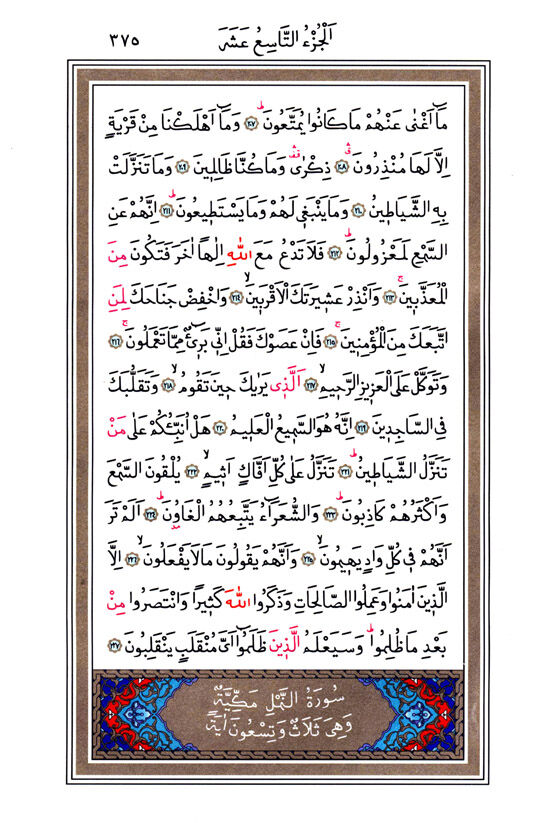 اَلْجُزْءُ التَّاسِعُ عَشَرَ ٣٧٥
مَٓا اَغْنٰى عَنْهُمْ مَا كَانُوا يُمَتَّعُونَۜ ﴿٢٠٧﴾ وَمَٓا اَهْلَكْنَا مِنْ قَرْيَةٍ
اِلَّا لَهَا مُنْذِرُونَۗ ﴿٢٠٨﴾ ذِكْرٰىۛ وَمَا كُنَّا ظَالِمِينَ ﴿٢٠٩﴾ وَمَا تَنَزَّلَتْ
بِهِ الشَّيَاطِينُ ﴿٢١٠﴾ وَمَا يَنْبَغِي لَهُمْ وَمَا يَسْتَطِيعُونَۜ ﴿٢١١﴾ اِنَّهُمْ عَنِ
السَّمْعِ لَمَعْزُولُونَۜ ﴿٢١٢﴾ فَلَا تَدْعُ مَعَ اللّٰهِ اِلٰهًا اٰخَرَ فَتَكُونَ مِنَ
الْمُعَذَّبِينَۚ ﴿٢١٣﴾ وَاَنْذِرْ عَشِيرَتَكَ الْاَقْرَبِينَۙ ﴿٢١٤﴾ وَاخْفِضْ جَنَاحَكَ لِمَنِ
اتَّبَعَكَ مِنَ الْمُؤْمِنِينَۚ ﴿٢١٥﴾ فَاِنْ عَصَوْكَ فَقُلْ اِنِّي بَرِٓيءٌ مِمَّا تَعْمَلُونَۚ ﴿٢١٦﴾
وَتَوَكَّلْ عَلَى الْعَزِيزِ الرَّحِيمِۙ ﴿٢١٧﴾ اَلَّذِي يَرٰيكَ حِينَ تَقُومُۙ ﴿٢١٨﴾ وَتَقَلُّبَكَ
فِي السَّاجِدِينَ ﴿٢١٩﴾ اِنَّهُ هُوَ السَّمِيعُ الْعَلِيمُ ﴿٢٢٠﴾ هَلْ اُنَبِّئُكُمْ عَلٰى مَنْ
تَنَزَّلُ الشَّيَاطِينُۜ ﴿٢٢١﴾ تَنَزَّلُ عَلٰى كُلِّ اَفَّاكٍ اَثِيمٍۙ ﴿٢٢٢﴾ يُلْقُونَ السَّمْعَ
وَاَكْثَرُهُمْ كَاذِبُونَۜ ﴿٢٢٣﴾ وَالشُّعَرَٓاءُ يَتَّبِعُهُمُ الْغَاوُ۫نَۜ ﴿٢٢٤﴾ اَلَمْ تَرَ
اَنَّهُمْ فِي كُلِّ وَادٍ يَهِيمُونَۙ ﴿٢٢٥﴾ وَاَنَّهُمْ يَقُولُونَ مَا لَا يَفْعَلُونَۙ ﴿٢٢٦﴾ اِلَّا
الَّذِينَ اٰمَنُوا وَعَمِلُوا الصَّالِحَاتِ وَذَكَرُوا اللّٰهَ كَثِيرًا وَانْتَصَرُوا مِنْ
بَعْدِ مَا ظُلِمُواۜ وَسَيَعْلَمُ الَّذِينَ ظَلَمُٓوا اَيَّ مُنْقَلَبٍ يَنْقَلِبُونَ ﴿٢٢٧﴾
سُورَةُ النَّمْلِ مَكِّيَّةٌ
وَهِيَ ثَلَاثٌ وَتِسْعُونَ اٰيَةً